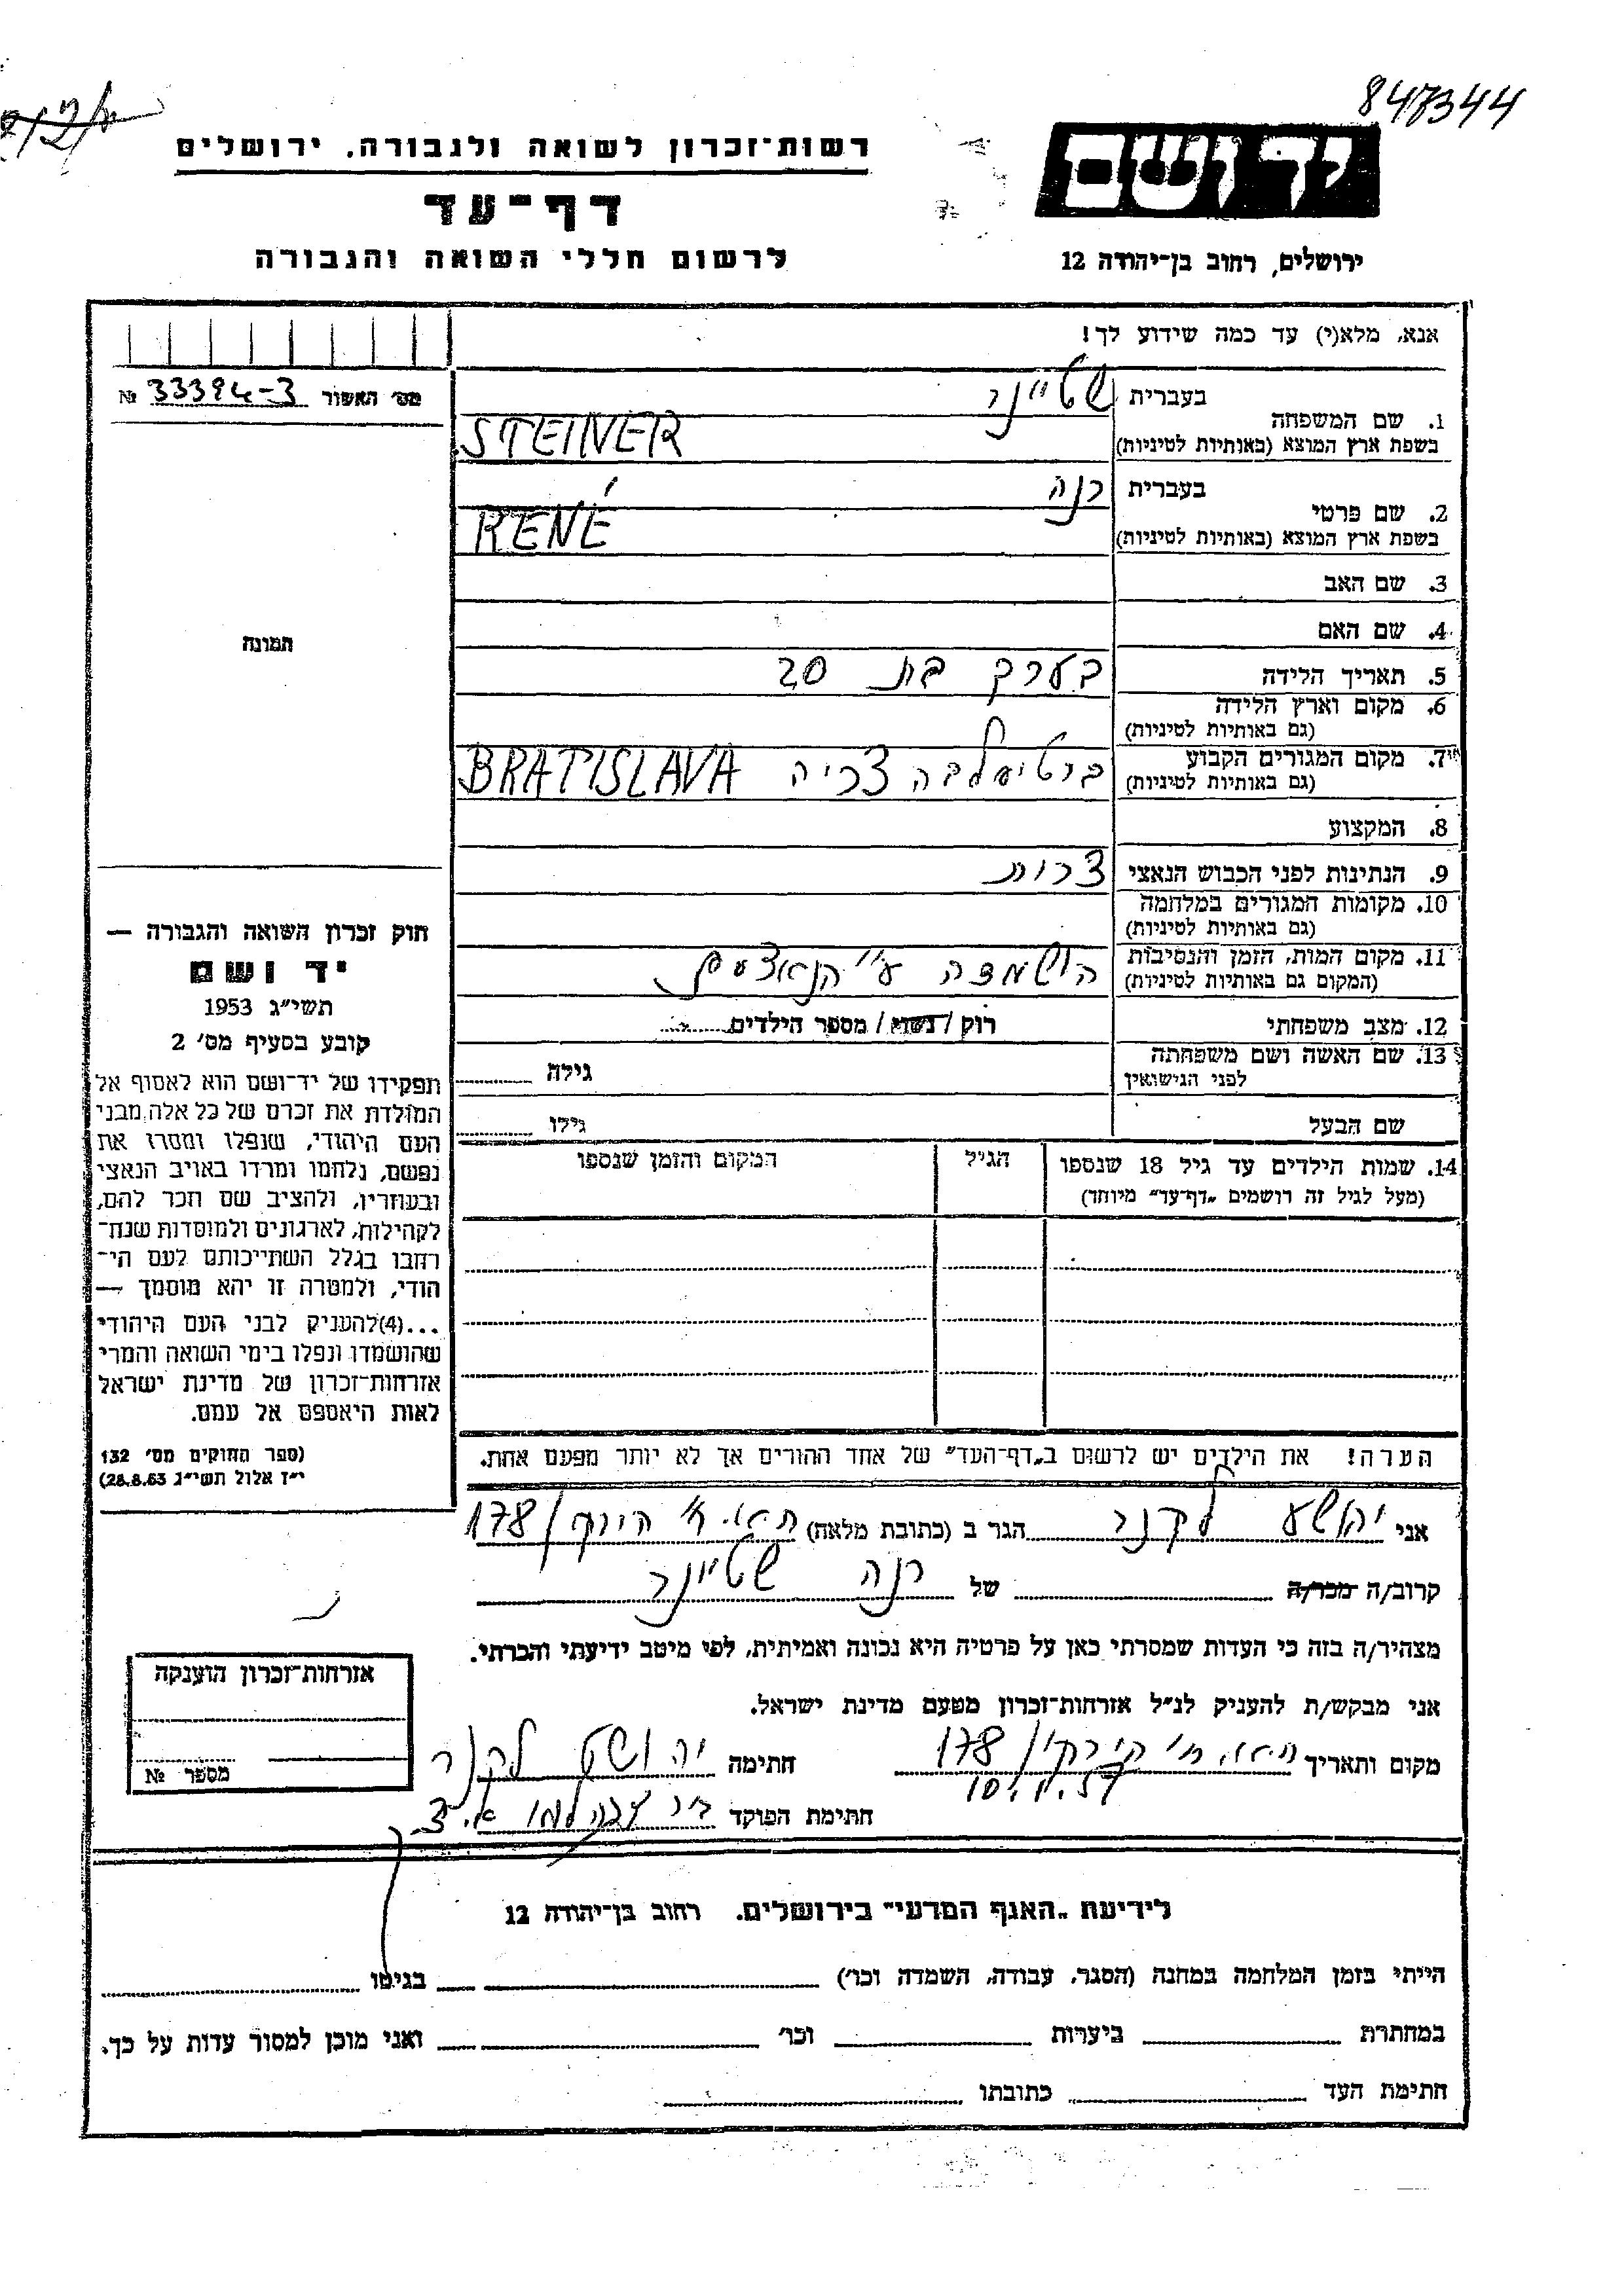 847344
רשות־זכרון לשואה ולגבורה. ירושלים
יד ושם
דף־עד
לרשום חללי השואה והגבורה
ירושלים, רחוב בן־יהודה 12
אנא, מלא(י) עד כמה שידוע לך!
מס׳ האשור 33394-3 №
1. שם המשפחה
בעברית שטיינר
בשפת ארץ המוצא (באותיות לטיניות) STEINER
2. שם פרטי
בעברית רנה
בשפת ארץ המוצא (באותיות לטיניות) RENÉ
3. שם האב
4. שם האם
5. תאריך הלידה בערך בת 20
6. מקום וארץ הלידה
(גם באותיות לטיניות)
7. מקום המגורים הקבוע
(גם באותיות לטיניות) ברטיסלבה צ׳כיה BRATISLAVA
8. המקצוע
9. הנתינות לפני הכבוש הנאצי צ׳כית
10. מקומות המגורים במלחמה
(גם באותיות לטיניות)
11. מקום המות, הזמן והנסיבות
(המקום גם באותיות לטיניות) הושמדה ע״י הנאצים
12. מצב משפחתי רוק / נשוי / מספר הילדים
13. שם האשה ושם משפחתה
לפני הנישואין גילה
שם הבעל גילו
14. שמות הילדים עד גיל 18 שנספו
(מעל לגיל זה רושמים „דף־עד״ מיוחד)
הגיל
המקום והזמן שנספו
תמונה
חוק זכרון השואה והגבורה —
יד ושם
תשי״ג 1953
קובע בסעיף מס׳ 2
תפקידו של יד־ושם הוא לאסוף אל
המולדת את זכרם של כל אלה מבני
העם היהודי, שנפלו ומסרו את
נפשם, נלחמו ומרדו באויב הנאצי
ובעוזריו, ולהציב שם וזכר להם,
לקהילות, לארגונים ולמוסדות שנח־
רחבו בגלל השתייכותם לעם הי־
הודי, ולמטרה זו יהא מוסמך —
...(4)להעניק לבני העם היהודי
שהושמדו ונפלו בימי השואה והמרי
אזרחות־זכרון של מדינת ישראל
לאות היאספם אל עמם.
(ספר החוקים מס׳ 132
י״ז אלול תשי״ג 28.8.53)
הערה! את הילדים יש לרשום ב„דף־העד״ של אחד ההורים אך לא יותר מפעם אחת.
אני יהושע לקנר הגר ב (כתובת מלאה) ת.א. הירקון 178
קרוב/ה מכר/ה של רנה שטיינר
מצהיר/ה בזה כי העדות שמסרתי כאן על פרטיה היא נכונה ואמיתית, לפי מיטב ידיעתי והכרתי.
אני מבקש/ת להעניק לנ״ל אזרחות־זכרון מטעם מדינת ישראל.
מקום ותאריך ת.א. הירקון 178 חתימה יהושע לקנר
חתימת הפוקד
אזרחות־זכרון הוענקה
מספר №
לידיעת „האגף המדעי״ בירושלים. רחוב בן־יהודה 12
הייתי בזמן המלחמה במחנה (הסגר, עבודה, השמדה וכו׳) בגיטו
במחתרת ביערות וכו׳ ואני מוכן למסור עדות על כך.
חתימת העד כתובתו